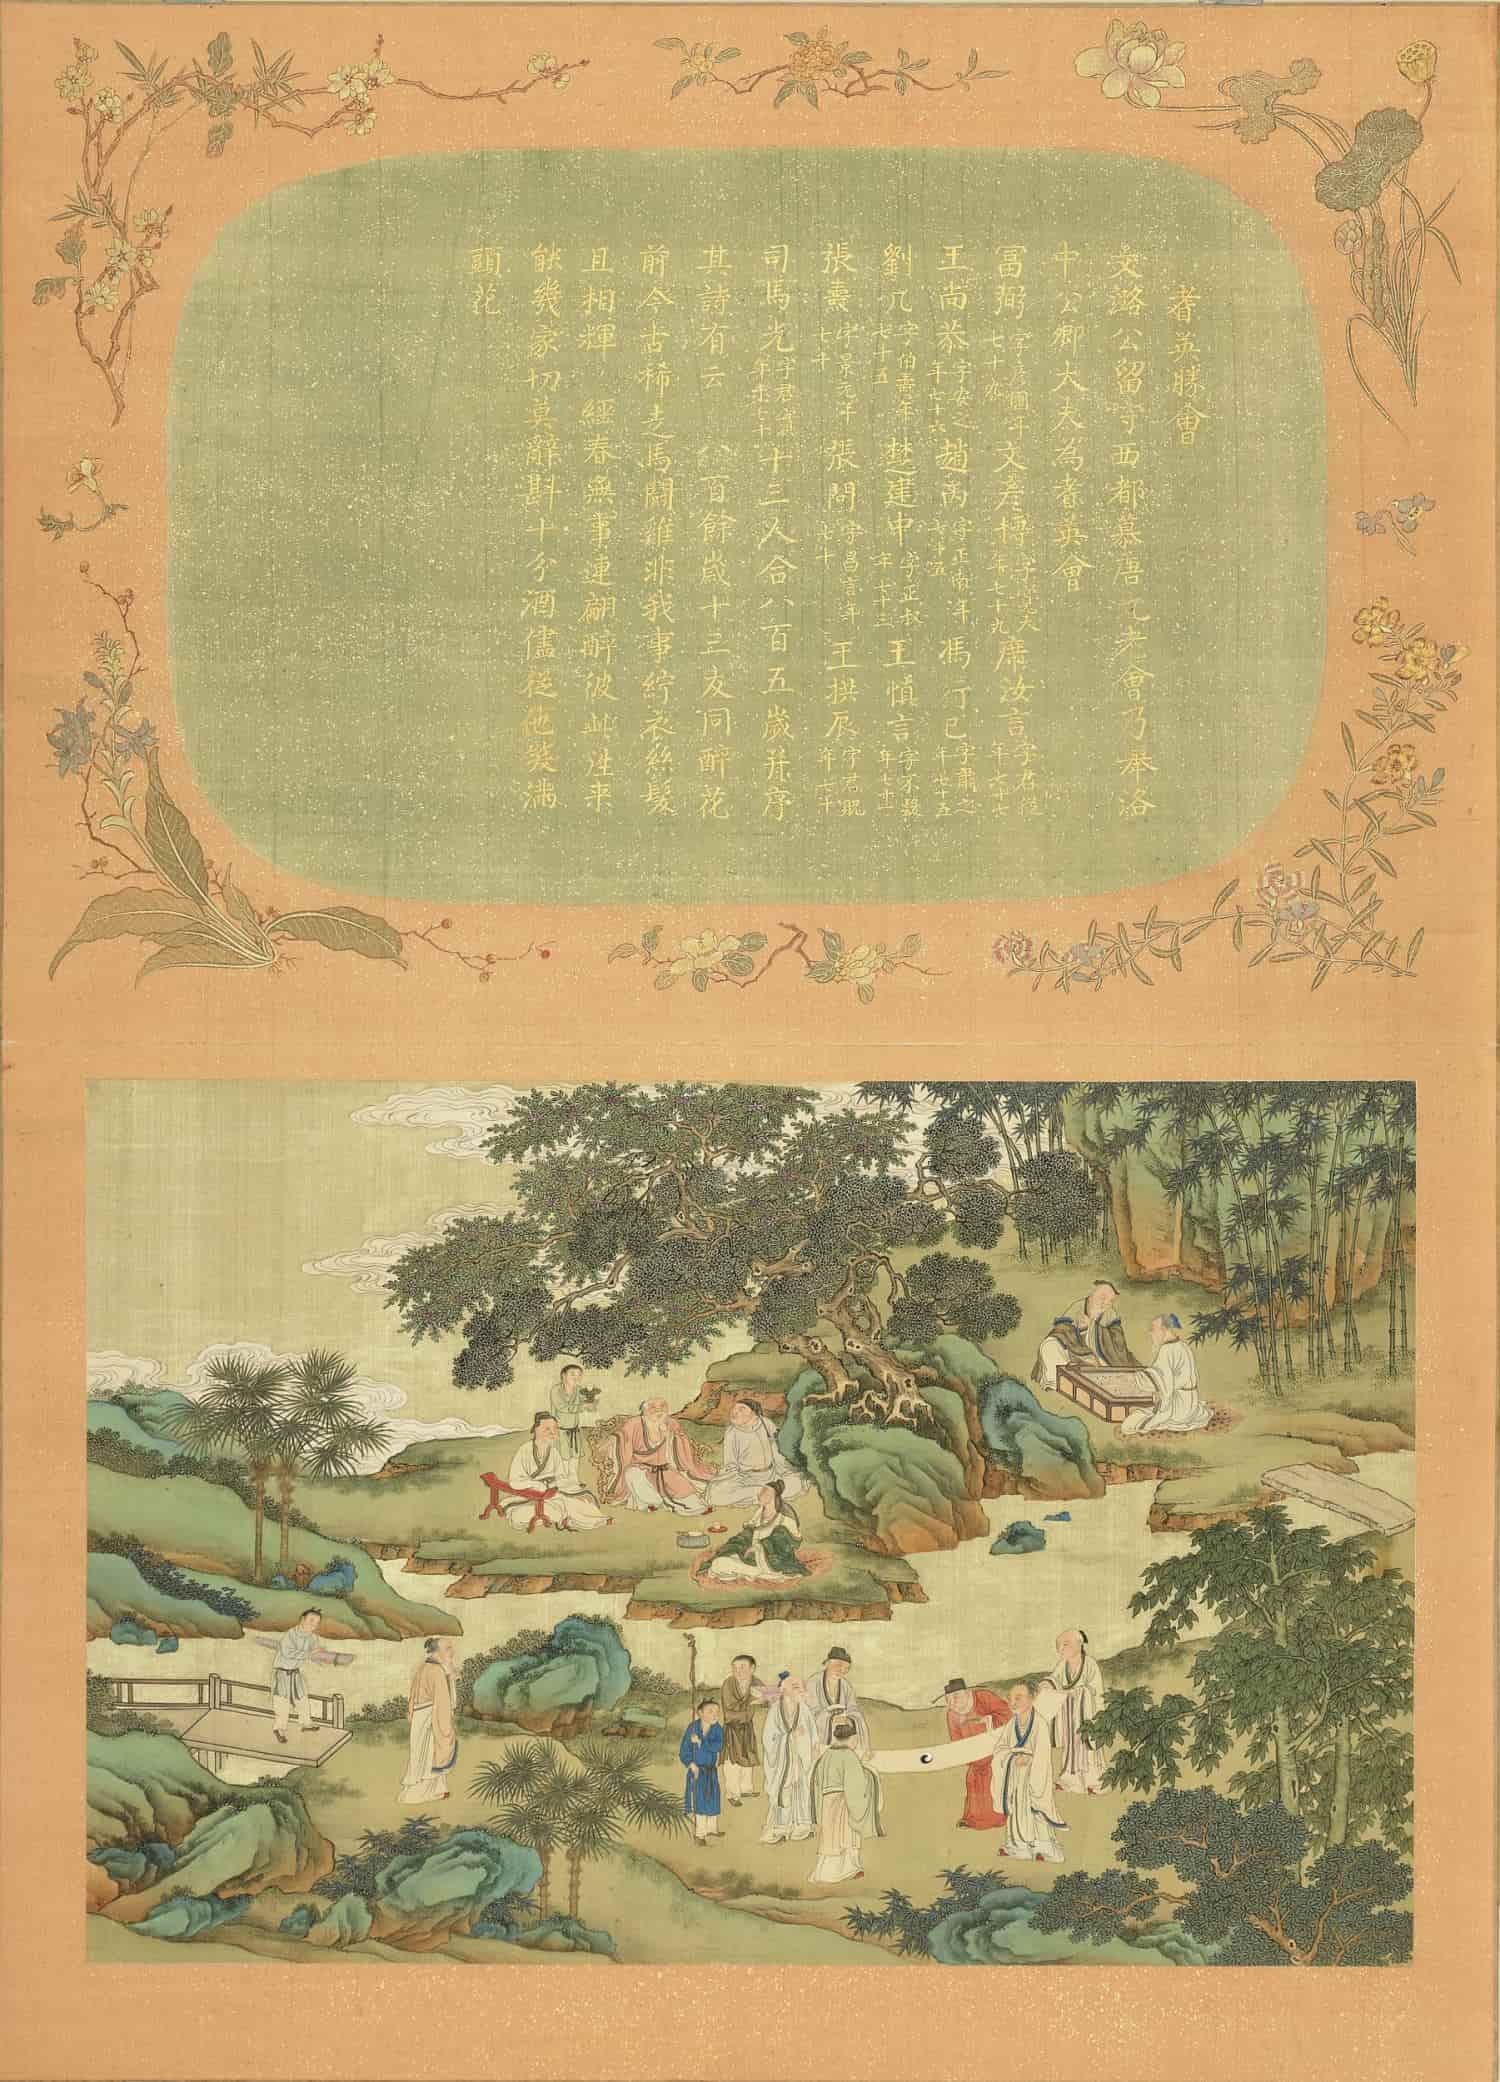 耆英勝會
文潞公留守西都慕唐九老會乃举洛
中公卿大夫為耆英會
富弼字彥國年七十九文彥博字寬夫年七十九席汝言字君從年七十七
王尚恭字安之年七十六趙丙字正南年七十五馮行己字肅之年七十五
劉几字伯壽年七十五楚建中字正叔年七十三王慎言字不疑年七十二
張燾字景元年七十張問字昌言年七十王拱辰字君貺年七十
司馬光字君實年未七十十三人合八百五歲并序
其詩有云 八百餘歲十三友同醉花
前今古稀走馬鬪雞非我事紵衣絲髮
且相輝 經春無事連翩醉彼此往來
能幾家切莫辭斟十分酒儘從他笑滿
頭花